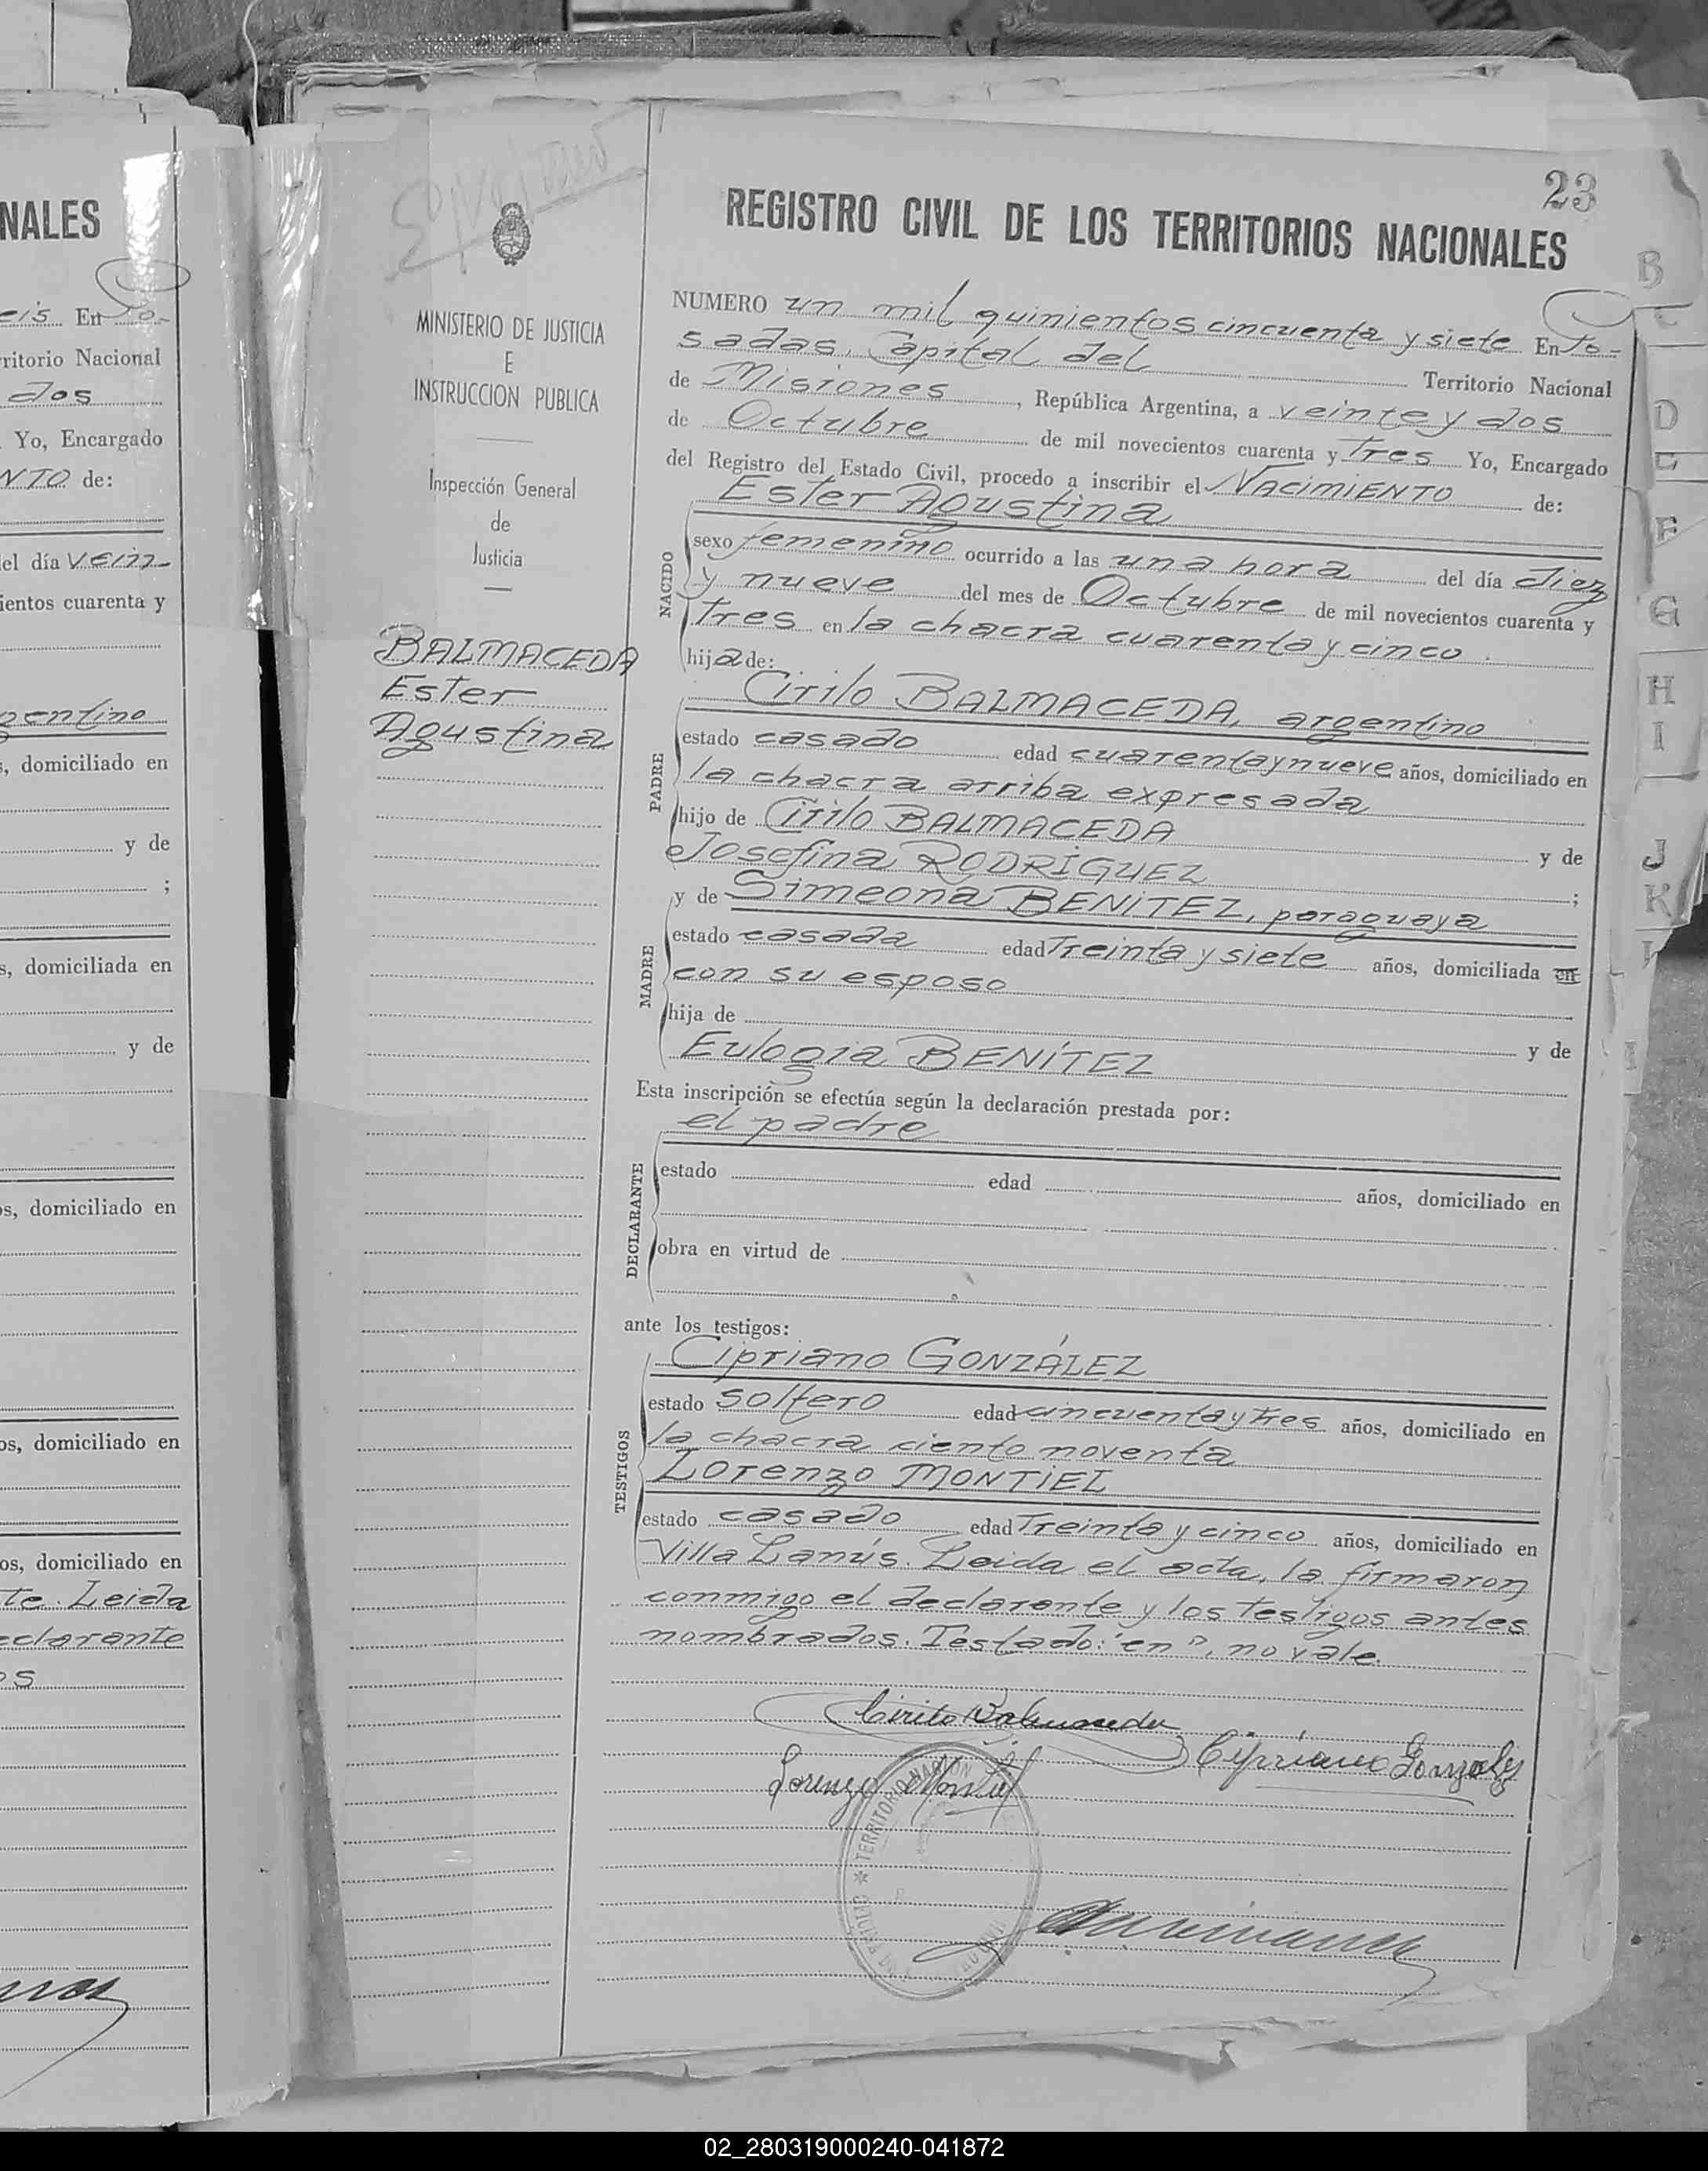 NALES
eis En Po-
ritorio Nacional
dos
Yo, Encargado
NTO de:
el día vein-
ientos cuarenta y
gentino
, domiciliado en
y de
;
s, domiciliada en
y de
os, domiciliado en
os, domiciliado en
os, domiciliado en
te. Leida
eclarante
os
23
MINISTERIO DE JUSTICIA
E
INSTRUCCION PUBLICA
Inspección General
de
Justicia
BALMACEDA
Ester
Agustina
REGISTRO CIVIL DE LOS TERRITORIOS NACIONALES
NUMERO un mil quinientos cincuenta y siete En Po-
sadas, Capital del Territorio Nacional
de Misiones, República Argentina, a veinte y dos
de Octubre de mil novecientos cuarenta y tres Yo, Encargado
del Registro del Estado Civil, procedo a inscribir el NACIMIENTO de:
Ester Agustina
NACIDO
sexo femenino ocurrido a las una hora del día diez
y nueve del mes de Octubre de mil novecientos cuarenta y
tres en la chacra cuarenta y cinco.
hija de:
Cirilo BALMACEDA, argentino
PADRE
estado casado edad cuarenta y nueve años, domiciliado en
la chacra arriba expresada
hijo de Cirilo BALMACEDA y de
Josefina RODRÍGUEZ ;
y de Simeona BENÍTEZ, paraguaya
MADRE
estado casada edad Treinta y siete años, domiciliada en
con su esposo
hija de y de
Eulogia BENÍTEZ
Esta inscripción se efectúa según la declaración prestada por:
el padre
DECLARANTE
estado edad años, domiciliado en
obra en virtud de
ante los testigos:
Cipriano GONZÁLEZ
TESTIGOS
estado soltero edad cincuenta y tres años, domiciliado en
la chacra ciento noventa
Lorenzo MONTIEL
estado casado edad Treinta y cinco años, domiciliado en
Villa Lanús. Leida el acta, la firmaron
conmigo el declarante y los testigos antes
nombrados. Testado: "en", no vale.
Cirilo Balmaceda
Cipriano Gonzalez
Lorenzo Montiel
TERRITORIO NACION
B
C
D
E
F
G
H
I
J
K
L
02_280319000240-041872